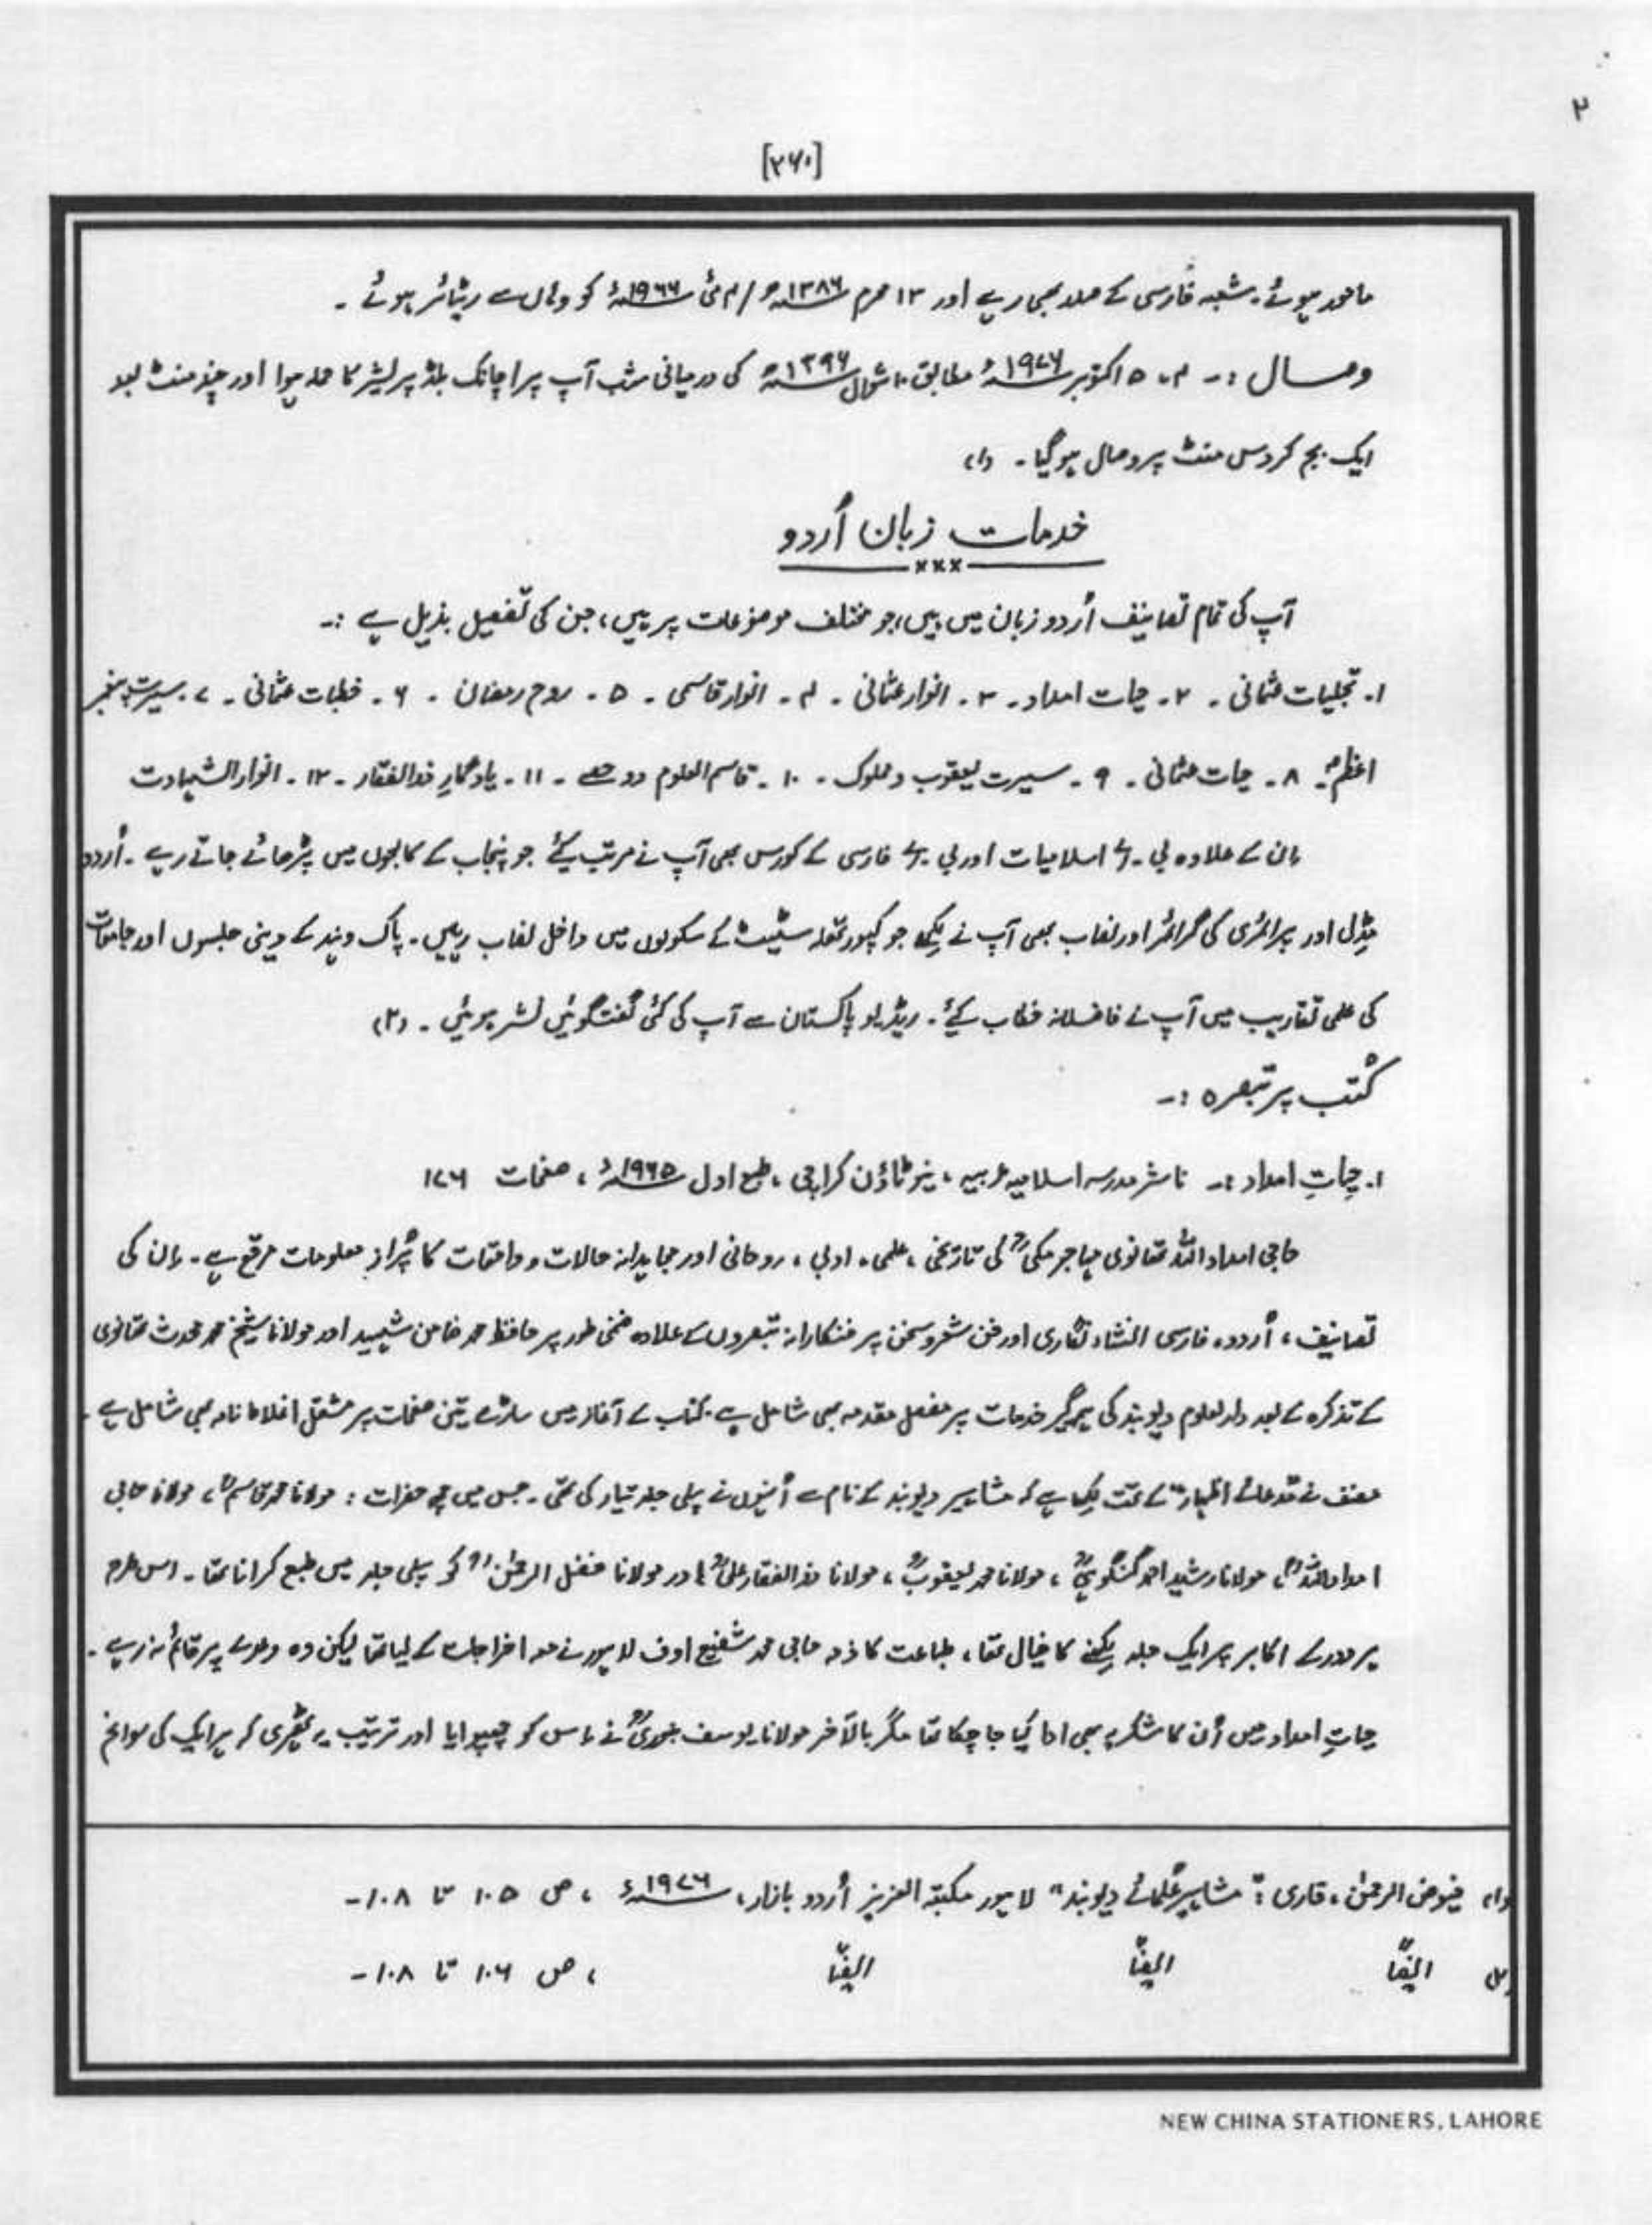 ۲
[۲۶۰]
مامور ہوئے۔ شعبہ فارسی کے صدر بھی رہے اور ۱۳ محرم ۱۳۸۶ھ / ۴ مئی ۱۹۶۶ء کو وہاں سے ریٹائر ہوئے ۔
وصال :۔ ۴، ۵ اکتوبر ۱۹۷۶ء مطابق ۱۰ شوال ۱۳۹۶ھ کی درمیانی شب آپ پر اچانک بلڈ پریشر کا حملہ ہوا اور چند منٹ بعد
ایک بج کر دس منٹ پر وصال ہوگیا ۔ (۱)
خدمات زبان اُردو
×××
آپ کی تمام تصانیف اُردو زبان میں ہیں، جو مختلف موضوعات پر ہیں، جن کی تفصیل بذیل ہے :۔
۱۔ تجلیات عثمانی ۔ ۲۔ حیات امداد۔ ۳۔ انوار عثمانی ۔ ۴۔ انوار قاسمی ۔ ۵۔ روح رمضان ۔ ۶۔ خطبات عثمانی ۔ ۷۔ سیرت پیغمبر
اعظمؐ۔ ۸۔ حیات عثمانی ۔ ۹۔ سیرت یعقوب و مملوک ۔ ۱۰۔ قاسم العلوم دو حصے ۔ ۱۱۔ یادگارِ ذوالفقار ۔ ۱۲۔ انوار الشہادت
اِن کے علاوہ بی ۔ اے اسلامیات اور بی ۔ اے فارسی کے کورس بھی آپ نے مرتب کیئے جو پنجاب کے کالجوں میں پڑھائے جاتے رہے ۔ اُردو
مڈل اور پرائمری کی گرائمر اور نصاب بھی آپ نے لکھے جو کپورتھلہ سٹیٹ کے سکولوں میں داخل نصاب رہیں۔ پاک و ہند کے دینی جلسوں اور جامعات
کی علمی تقاریب میں آپ نے فاضلانہ خطاب کیئے۔ ریڈیو پاکستان سے آپ کی کئی گفتگوئیں نشر ہوئیں ۔ (۲)
کُتب پر تبصرہ :۔
۱۔ حیاتِ امداد :۔ ناشر مدرسہ اسلامیہ عربیہ ، نیو ٹاؤن کراچی ، طبع اول ۱۹۶۵ء ، صفحات ۱۷۶
حاجی امداد اللہ تھانوی مہاجر مکیؒ کی تاریخی ، علمی ، ادبی ، روحانی اور مجاہدانہ حالات و واقعات کا پُر از معلومات مرقع ہے۔ اِن کی
تصانیف ، اُردو ، فارسی انشاء نگاری اور فن شعر و سخن پر فنکارانہ تبصروں کے علاوہ ضمنی طور پر حافظ محمد ضامن شہید اور مولانا شیخ محمد محدث تھانوی
کے تذکرہ کے بعد دارالعلوم دیوبند کی ہمہ گیر خدمات پر مفصل مقدمہ بھی شامل ہے۔ کتاب کے آغاز میں ساڑھے تین صفحات پر مشتمل اغلاط نامہ بھی شامل ہے ۔
مصنف نے "مدعائے اظہار" کے تحت لکھا ہے کہ مشاہیر دیوبند کے نام سے اُنہوں نے پہلی جلد تیار کی تھی ۔ جس میں چھ حضرات : مولانا محمد قاسمؒ ، مولانا حاجی
امداد اللہؒ ، مولانا رشید احمد گنگوہیؒ ، مولانا محمد یعقوبؒ ، مولانا ذوالفقار علیؒ اور مولانا فضل الرحمٰنؒ کو پہلی جلد میں طبع کرانا تھا ۔ اس طرح
ہر دور کے اکابر پر ایک جلد لکھنے کا خیال تھا ، طباعت کا ذمہ حاجی محمد شفیع اوف لاہور نے معہ اخراجات کے لیا تھا لیکن وہ وعدے پر قائم نہ رہے ۔
حیاتِ امداد میں اُن کا شکریہ بھی ادا کیا جا چکا تھا مگر بالآخر مولانا یوسف بنوریؒ نے اس کو چھپوایا اور ترتیب یہ ٹھہری کہ ہر ایک کی سوانح
(۱) فیوض الرحمٰن ، قاری : "مشاہیر علمائے دیوبند" لاہور مکتبۃ العزیز اُردو بازار، ۱۹۷۶ء ، ص ۱۰۵ تا ۱۰۸۔
(۲) ایضاً ایضاً ایضاً ، ص ۱۰۶ تا ۱۰۸۔
NEW CHINA STATIONERS, LAHORE